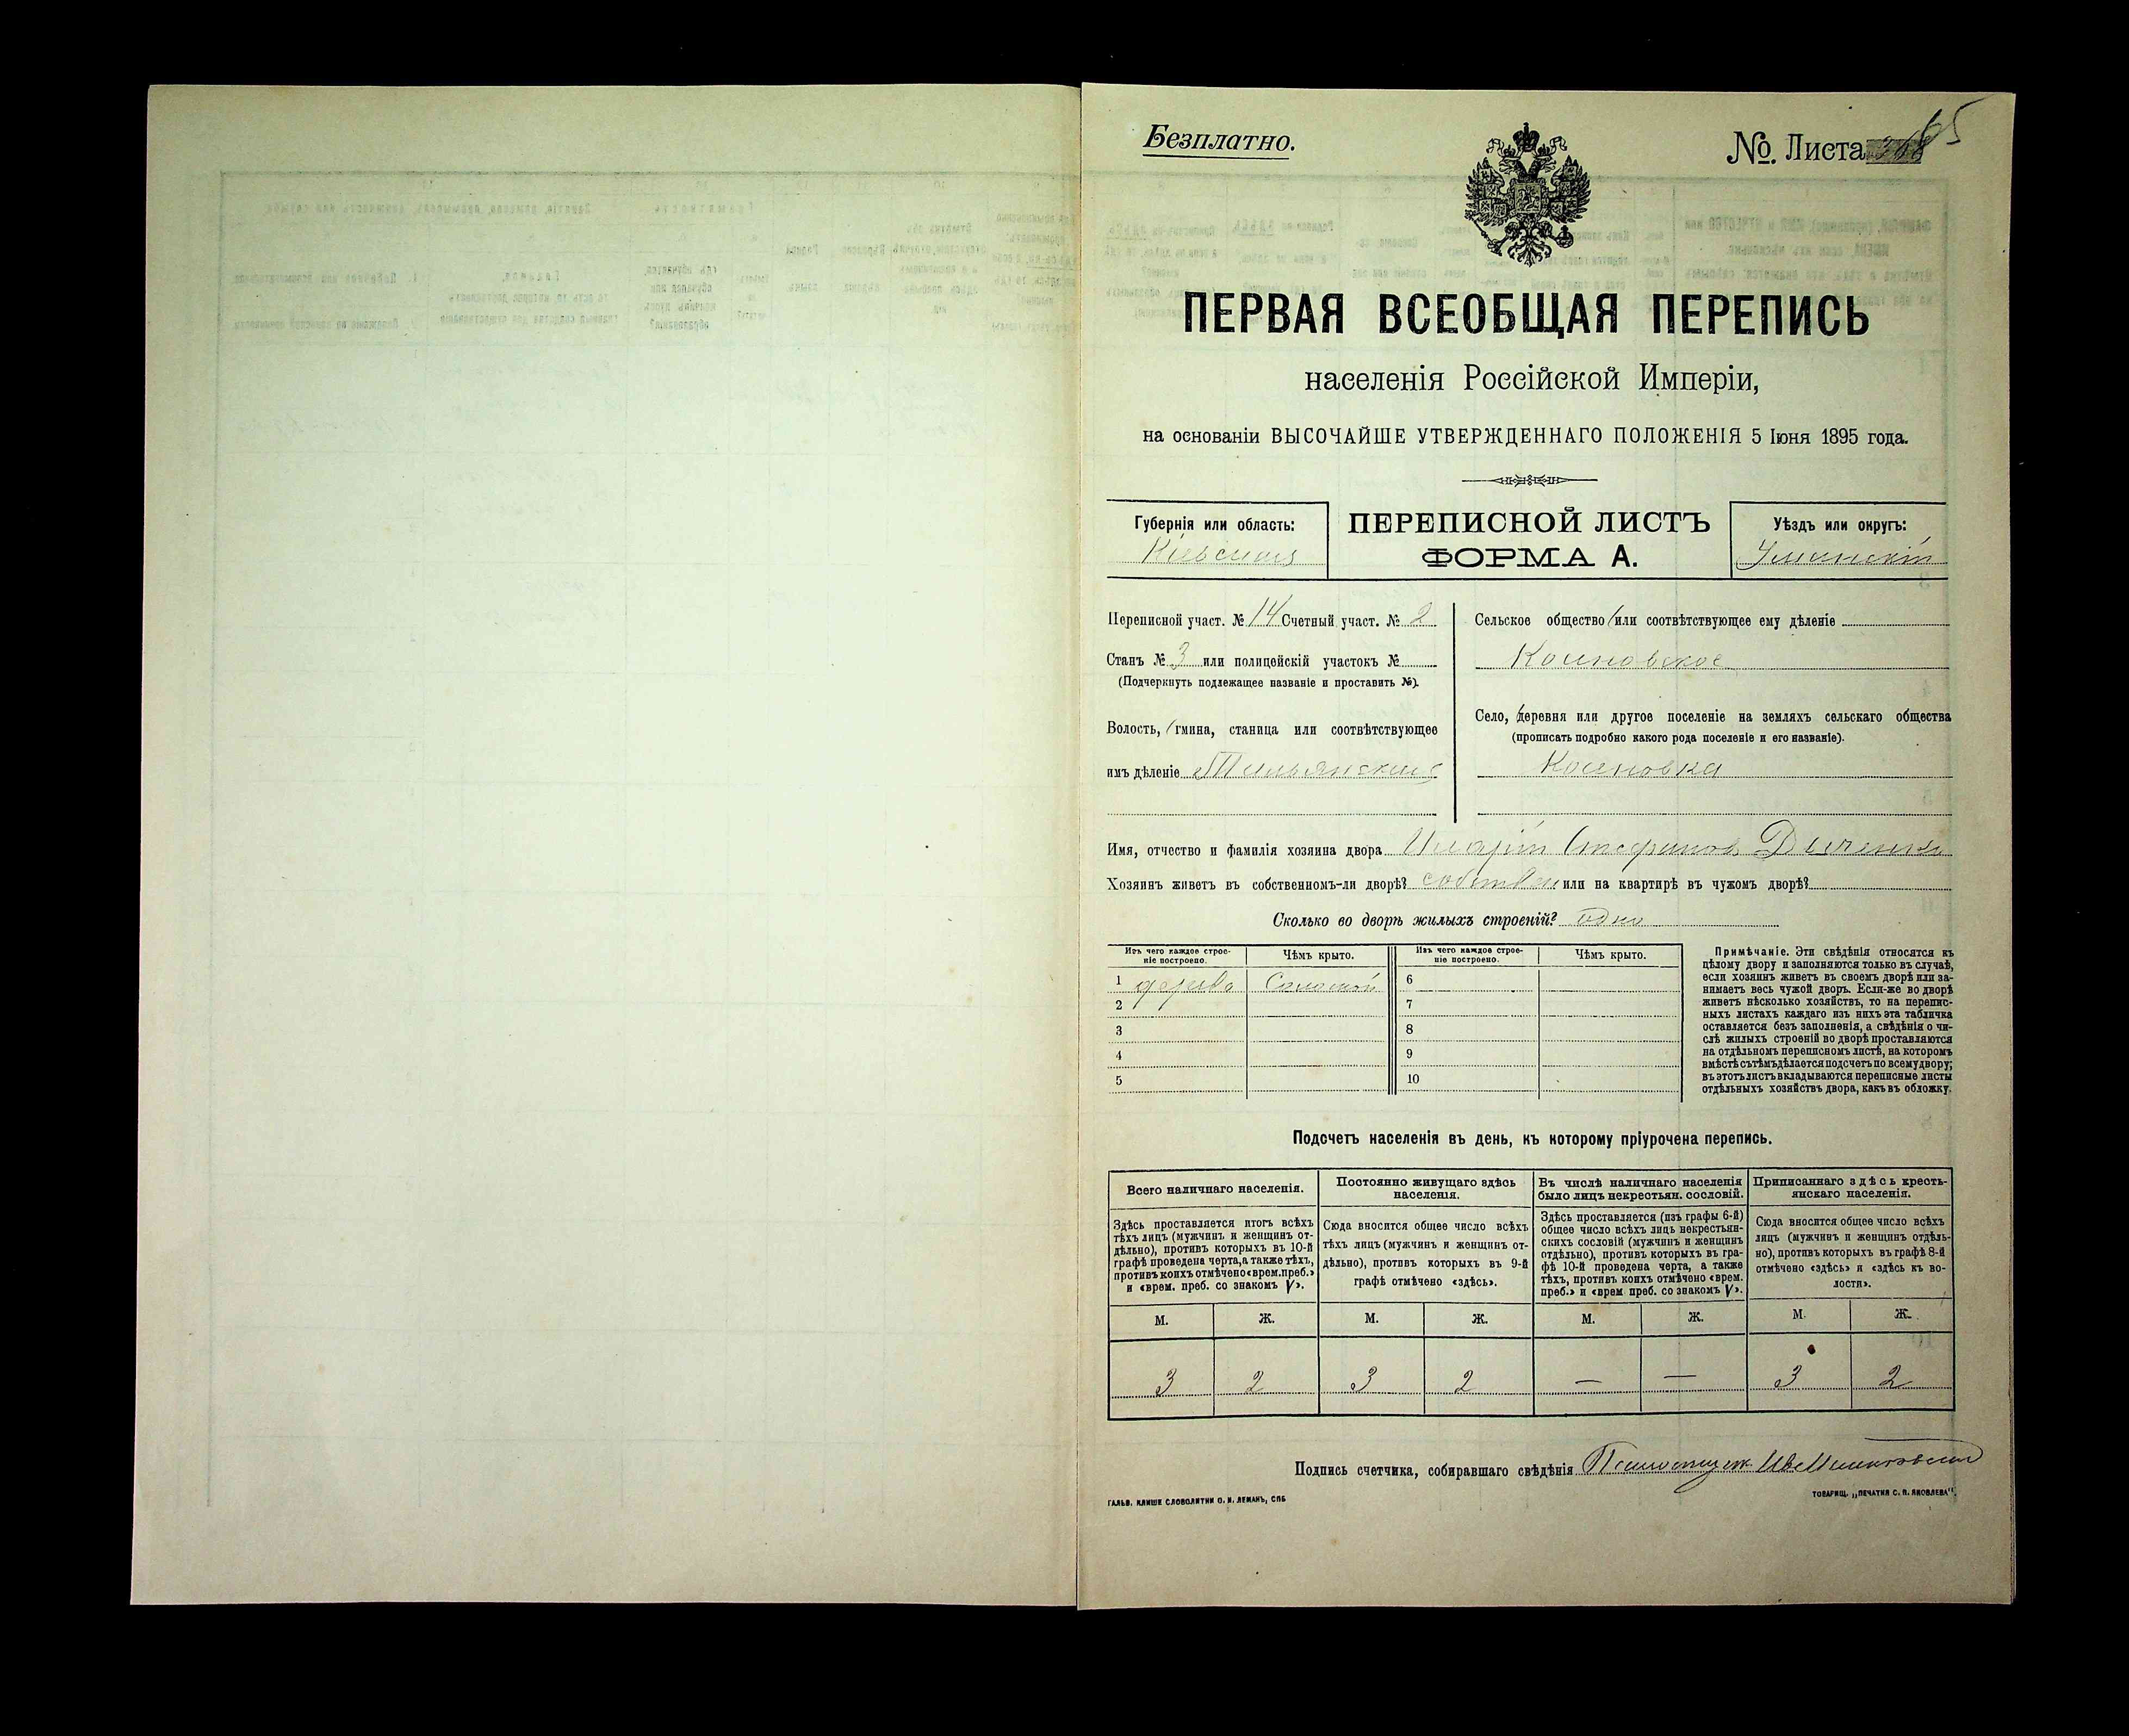 Безплатно.
№. Листа
ПЕРВАЯ ВСЕОБЩАЯ ПЕРЕПИСЬ
населенія Россійской Имперіи,
на основаніи ВЫСОЧАЙШЕ УТВЕРЖДЕННАГО ПОЛОЖЕНІЯ 5 Іюня 1895 года.
Губернія или область:
Кіевская
ПЕРЕПИСНОЙ ЛИСТЪ
ФОРМА А.
Уѣздъ или округъ:
Уманскій
Переписной участ. № 14 Счетный участ. № 2
Станъ № 3 или полицейскій участокъ №
(Подчеркнуть подлежащее названіе и проставить №).
Волость, (гмина, станица или соотвѣтствующее
имъ дѣленіе
Сельское общество (или соотвѣтствующее ему дѣленіе
Село, (деревня или другое поселеніе на земляхъ сельскаго общества
(прописать подробно какого рода поселеніе и его названіе).
Имя, отчество и фамилія хозяина двора
Хозяинъ живетъ въ собственномъ-ли дворѣ? собствен или на квартирѣ въ чужомъ дворѣ?
Сколько во дворѣ жилыхъ строеній? одно
Изъ чего каждое строе-
ніе построено.
Чѣмъ крыто.
Изъ чего каждое строе-
ніе построено.
Чѣмъ крыто.
1 дерева Соломой 6
2 7
3 8
4 9
5 10
Примѣчаніе. Эти свѣдѣнія относятся къ
цѣлому двору и заполняются только въ случаѣ,
если хозяинъ живетъ въ своемъ дворѣ или за-
нимаетъ весь чужой дворъ. Если-же во дворѣ
живетъ нѣсколько хозяйствъ, то на перепис-
ныхъ листахъ каждаго изъ нихъ эта табличка
оставляется безъ заполненія, а свѣдѣнія о чи-
слѣ жилыхъ строеній во дворѣ проставляются
на отдѣльномъ переписномъ листѣ, на которомъ
вмѣстѣ съ тѣмъ дѣлается подсчетъ по всему двору;
въ этотъ листъ вкладываются переписные листы
отдѣльныхъ хозяйствъ двора, какъ въ обложку.
Подсчетъ населенія въ день, къ которому пріурочена перепись.
Всего наличнаго населенія.
Здѣсь проставляется итогъ всѣхъ
тѣхъ лицъ (мужчинъ и женщинъ от-
дѣльно), противъ которыхъ въ 10-й
графѣ проведена черта, а также тѣхъ,
противъ коихъ отмѣчено «врем. преб.»
и «врем. преб. со знакомъ V».
Постоянно живущаго здѣсь
населенія.
Сюда вносится общее число всѣхъ
тѣхъ лицъ (мужчинъ и женщинъ от-
дѣльно), противъ которыхъ въ 9-й
графѣ отмѣчено «здѣсь».
Въ числѣ наличнаго населенія
было лицъ некрестьян. сословій.
Здѣсь проставляется (изъ графы 6-й)
общее число всѣхъ лицъ некрестьян-
скихъ сословій (мужчинъ и женщинъ
отдѣльно), противъ которыхъ въ гра-
фѣ 10-й проведена черта, а также
тѣхъ, противъ коихъ отмѣчено «врем.
преб.» и «врем преб. со знакомъ V».
Приписаннаго здѣсь кресть-
янскаго населенія.
Сюда вносится общее число всѣхъ
лицъ (мужчинъ и женщинъ отдѣль-
но), противъ которыхъ въ графѣ 8-й
отмѣчено «здѣсь» и «здѣсь къ во-
лости».
М. Ж. М. Ж. М. Ж. М. Ж.
3 2 3 2 — — 3 2
Подпись счетчика, собиравшаго свѣдѣнія
ГАЛЬВ. КЛИШЕ СЛОВОЛИТНИ О. И. ЛЕМАНЪ, СПБ
ТОВАРИЩ. „ПЕЧАТНЯ С. П. ЯКОВЛЕВА".